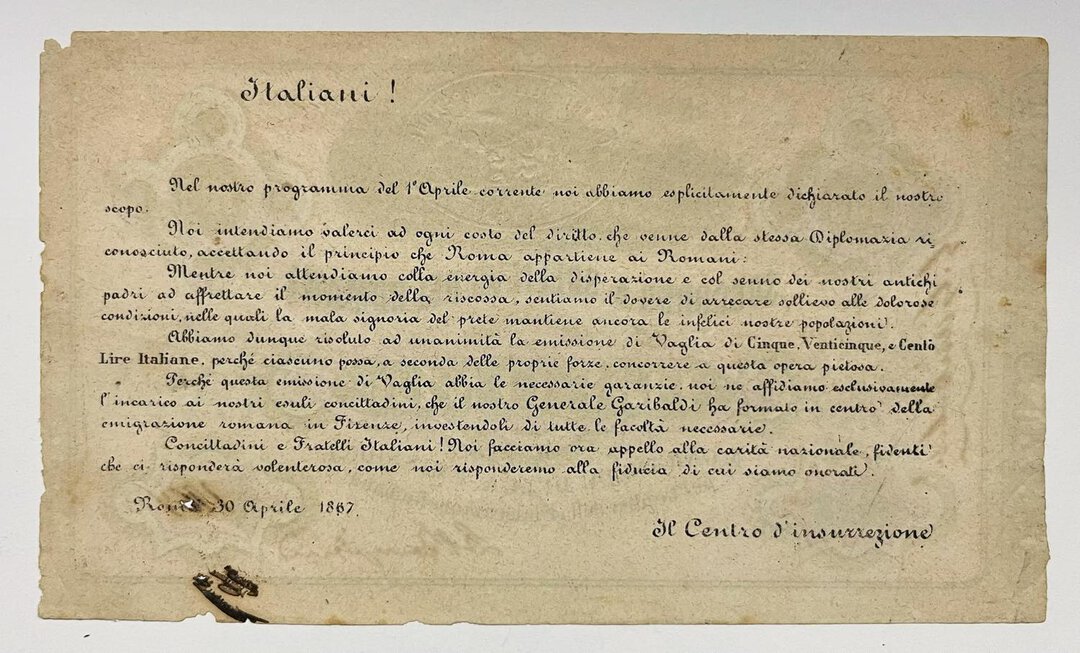 Italiani !
Nel nostro programma del 1º Aprile corrente noi abbiamo esplicitamente dichiarato il nostro
scopo.
Noi intendiamo valerci ad ogni costo del diritto, che venne dalla stessa Diplomazia ri
conosciuto, accettando il principio che Roma appartiene ai Romani:
Mentre noi attendiamo colla energia della disperazione e col senno dei nostri antichi
padri ad affrettare il momento della riscossa, sentiamo il dovere di arrecare sollievo alle dolorose
condizioni, nelle quali la mala signoria del prete mantiene ancora le infelici nostre popolazioni.
Abbiamo dunque risoluto ad unanimità la emissione di Vaglia di Cinque, Venticinque, e Cento
Lire Italiane, perché ciascuno possa, a seconda delle proprie forze, concorrere a questa opera pietosa.
Perché questa emissione di Vaglia abbia le necessarie garanzie, noi ne affidiamo esclusivamente
l'incarico ai nostri esuli concittadini, che il nostro Generale Garibaldi ha formato in centro della
emigrazione romana in Firenze, investendoli di tutte le facoltà necessarie.
Concittadini e Fratelli Italiani! Noi facciamo ora appello alla carità nazionale, fidenti
che ci risponderà volenterosa, come noi risponderemo alla fiducia di cui siamo onorati.
Roma 30 Aprile 1867.
Il Centro d'insurrezione